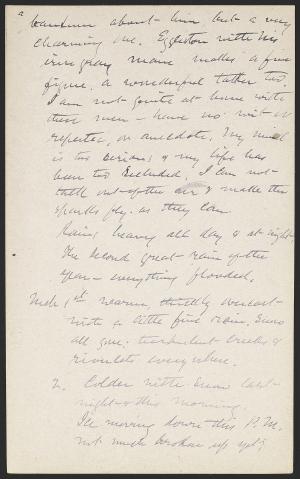 about him, but a very
charming one. Eggleston with his
iron gray mane makes a fine
figure, a wonderful talker too.
I am not quite at home with
these men – have no wit or
repartee, or anecdote. My mind
is too serious & my life has
been too secluded. I can not
talk out of the air & make the
sparks fly as they can.
Rains heavy all day & at night
The second great rain of the
year – everything flooded.
March 1st warm, overcast
with a little fine rain. Snow
all gone. turbulent creeks &
rivulets everywhere.
2. Colder with snow last
night & this morning.
Ice moving down this P.M.
not much broken up yet.